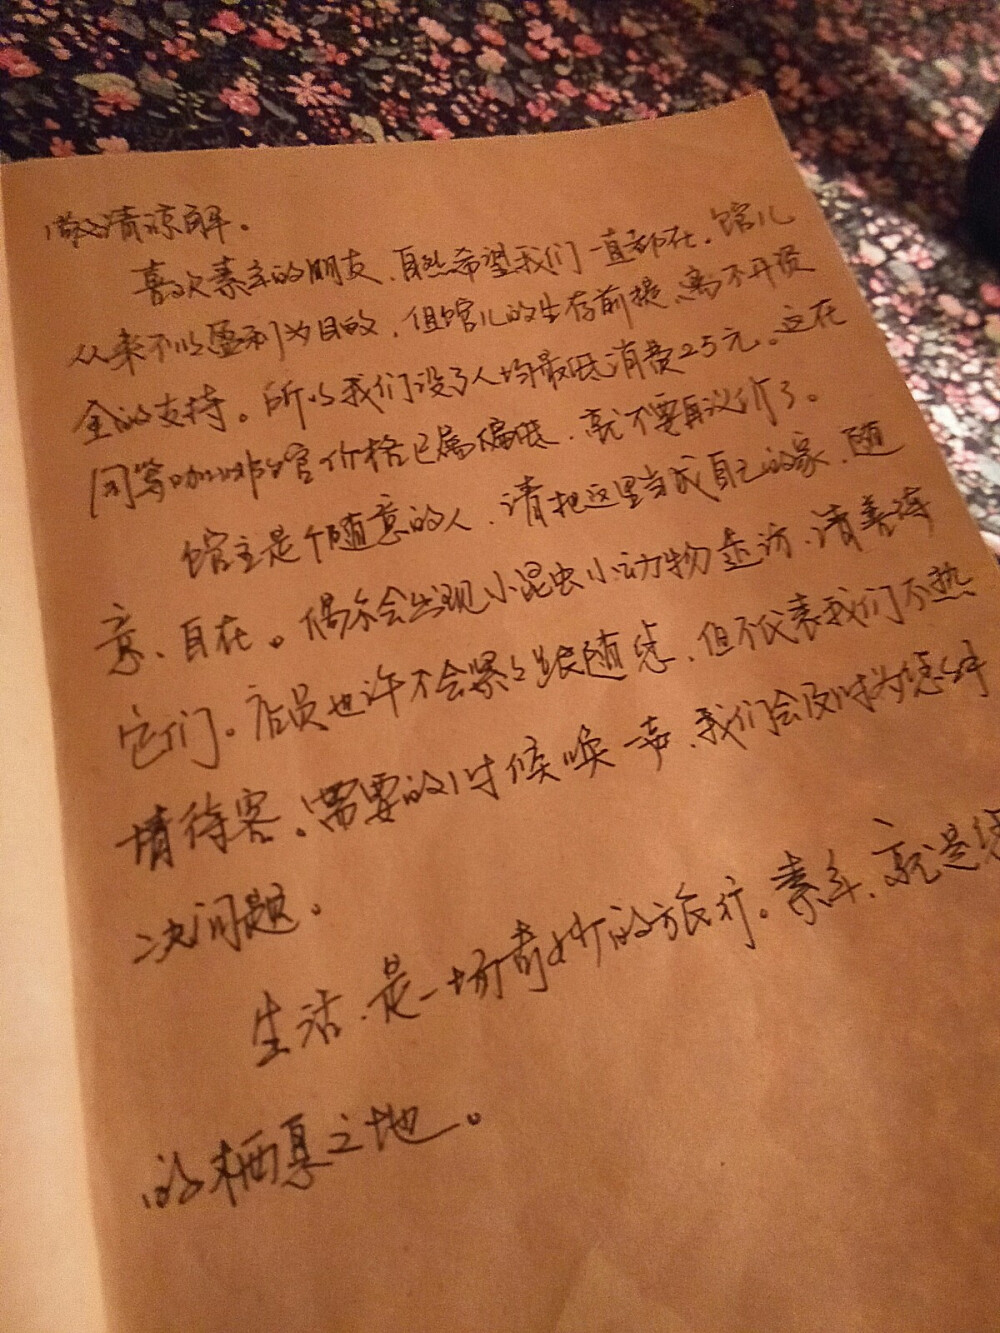 敬请谅解。
喜欢素年的朋友、自然希望我们一直都在。馆儿
从来不以盈利为目的，但馆儿的生存前提、离不开资
金的支持。所以我们设了人均最低消费25元。这在
同等咖啡馆价格已属偏低、就不要再议价了。
馆主是个随意的人、请把这里当成自己的家、随
意、自在。偶尔会出现小昆虫小动物走访、请善待
它们。店员也许不会紧紧跟随您、但不代表我们不热
情待客。需要的时候唤一声、我们会及时为您解
决问题。
生活、是一场奇妙的旅行。素年、就是您
的栖息之地。